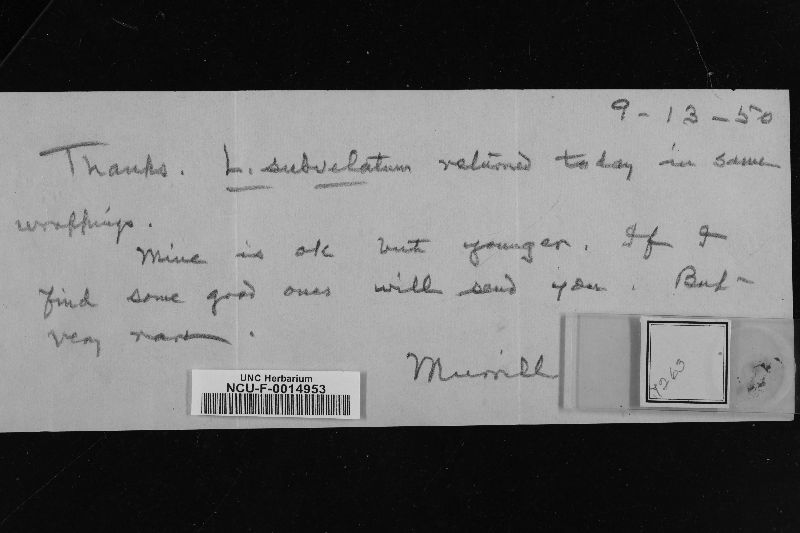 9-13-50
Thanks. L. subvelatum returned today in same
wrappings.
Mine is ok but younger. If I
find some good ones will send you. But-
very rare.
Murrill
UNC Herbarium
NCU-F-0014953
7263